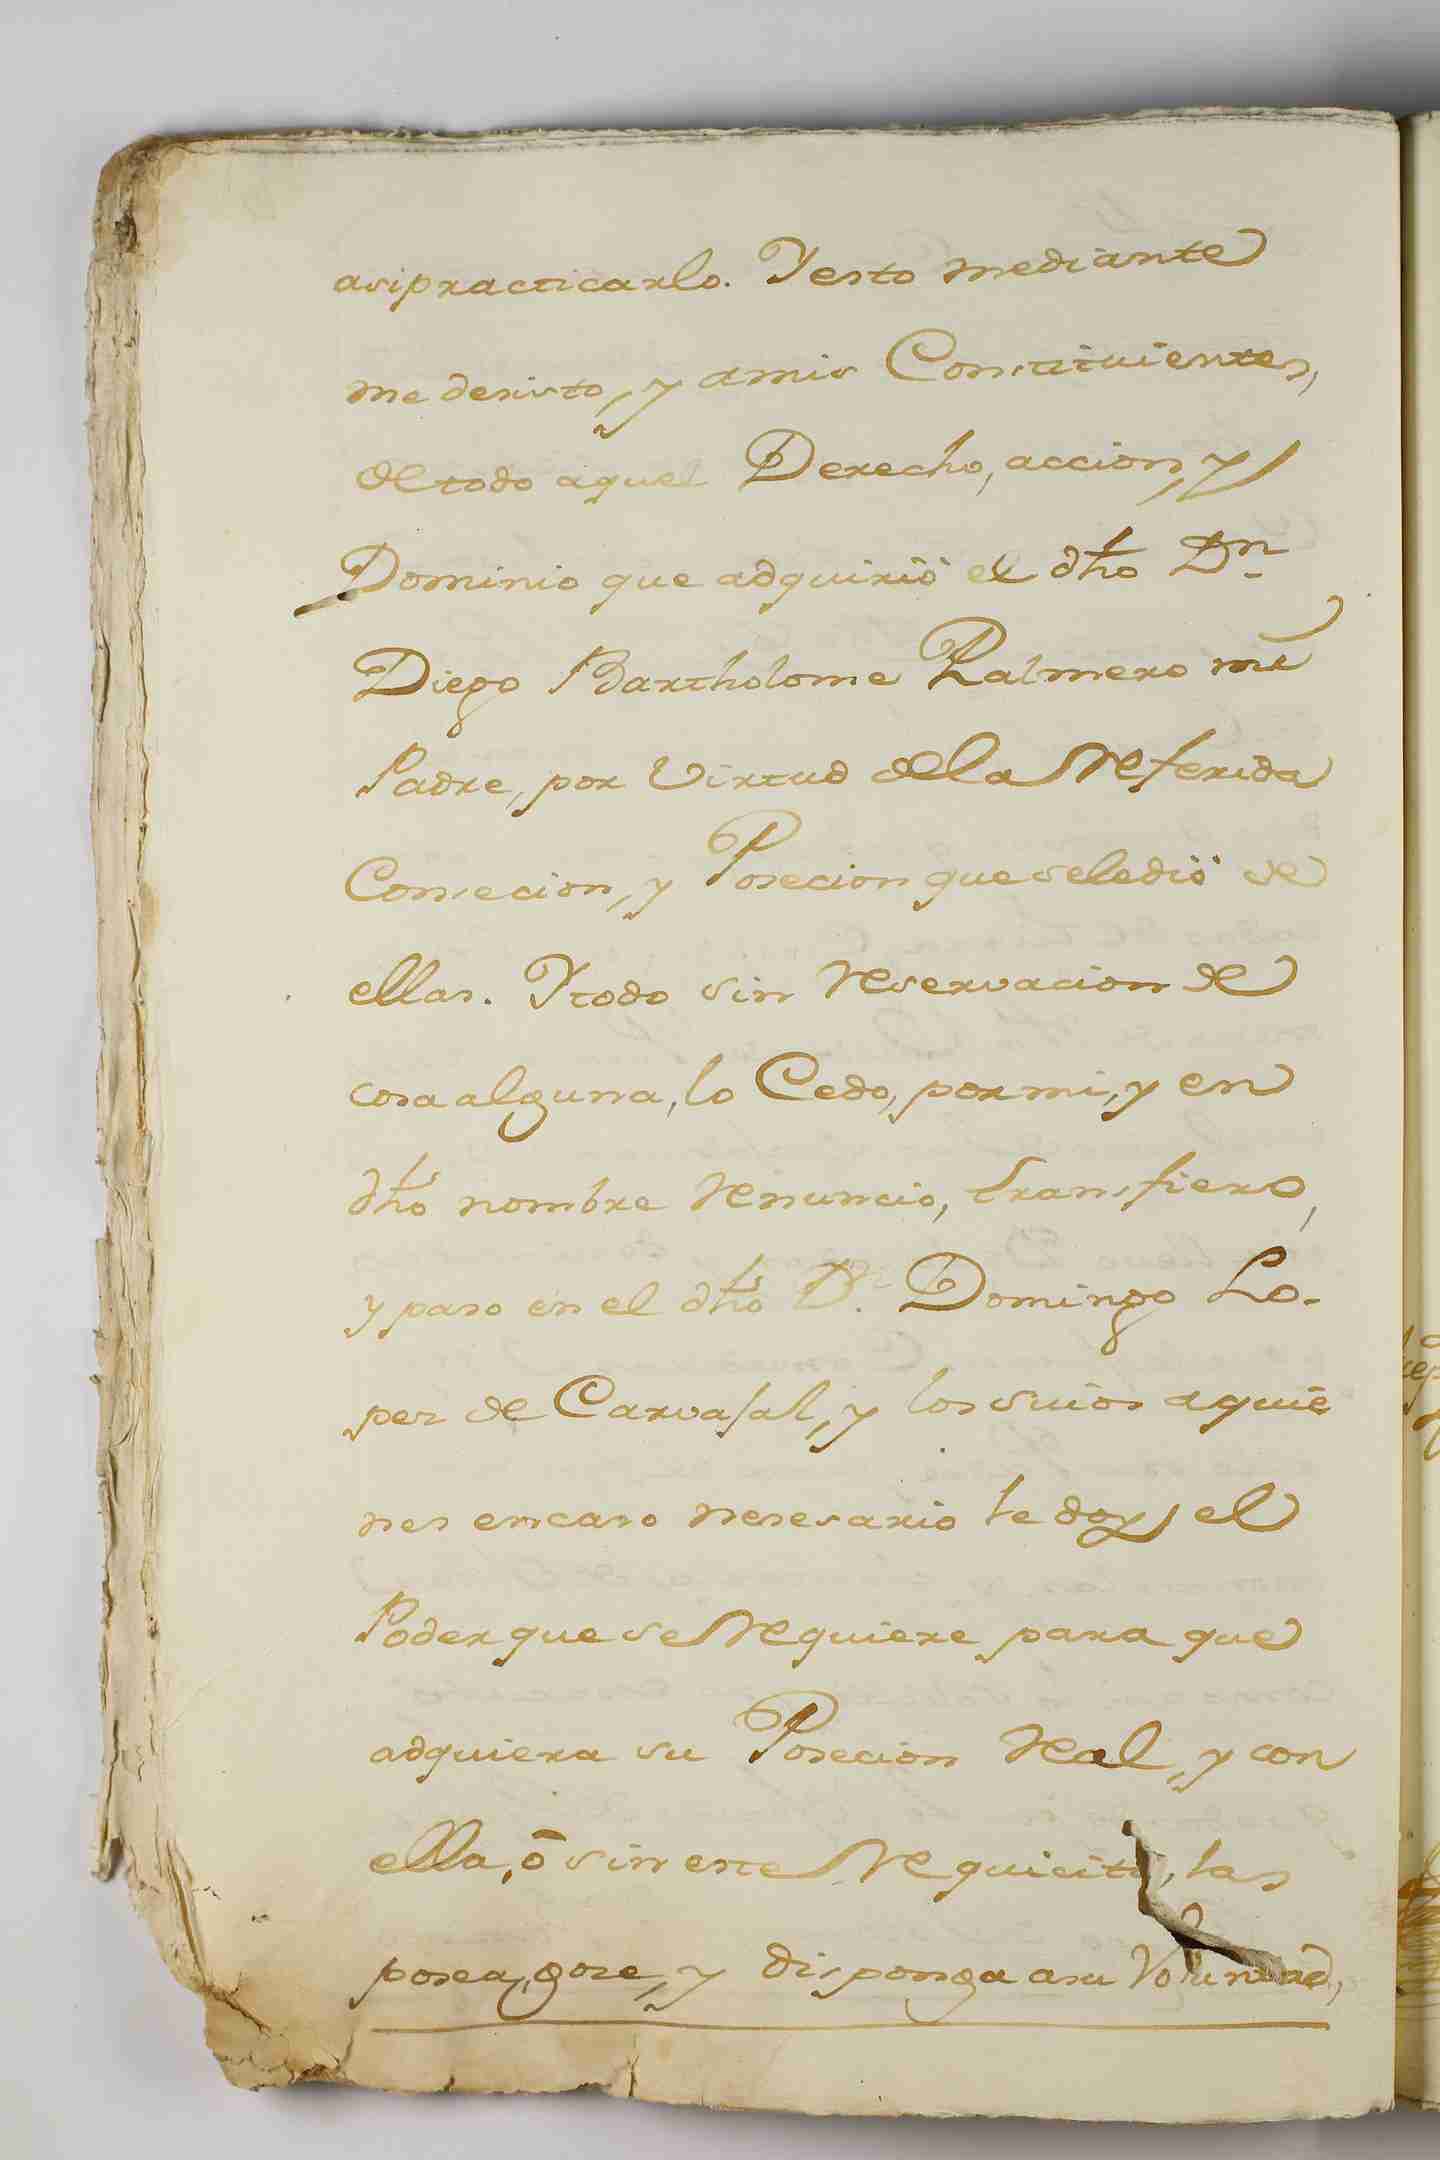 asipracticarlo. Yesto mediante
me desisto, y amis Constituientes,
deltodo aquel Derecho, accion, y
Dominio que adquirió el dho Dn.
Diego Bartholome Palmero mi
Padre, por Virtud dela Referida
Consecion, y Posecion queseledió de
ellas. Ytodo sin Reservacion de
cosa alguna, lo Cedo, pormi, y en
dho nombre Renuncio, transfiero,
y paso en el dho Dn. Domingo Lo-
pes de Carvajal, y los suios aquie
nes encaso nesesario le doy el
Poderque se Requiere para que
adquiera su Posecion Real, y con
ella, ó sin este Requicito, las
posea, gose, y disponga asu Voluntad,